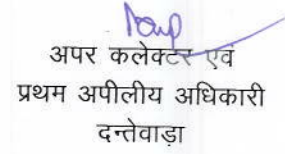 अपर कलेक्टर एवं
प्रथम अपीलीय अधिकारी
दन्तेवाड़ा